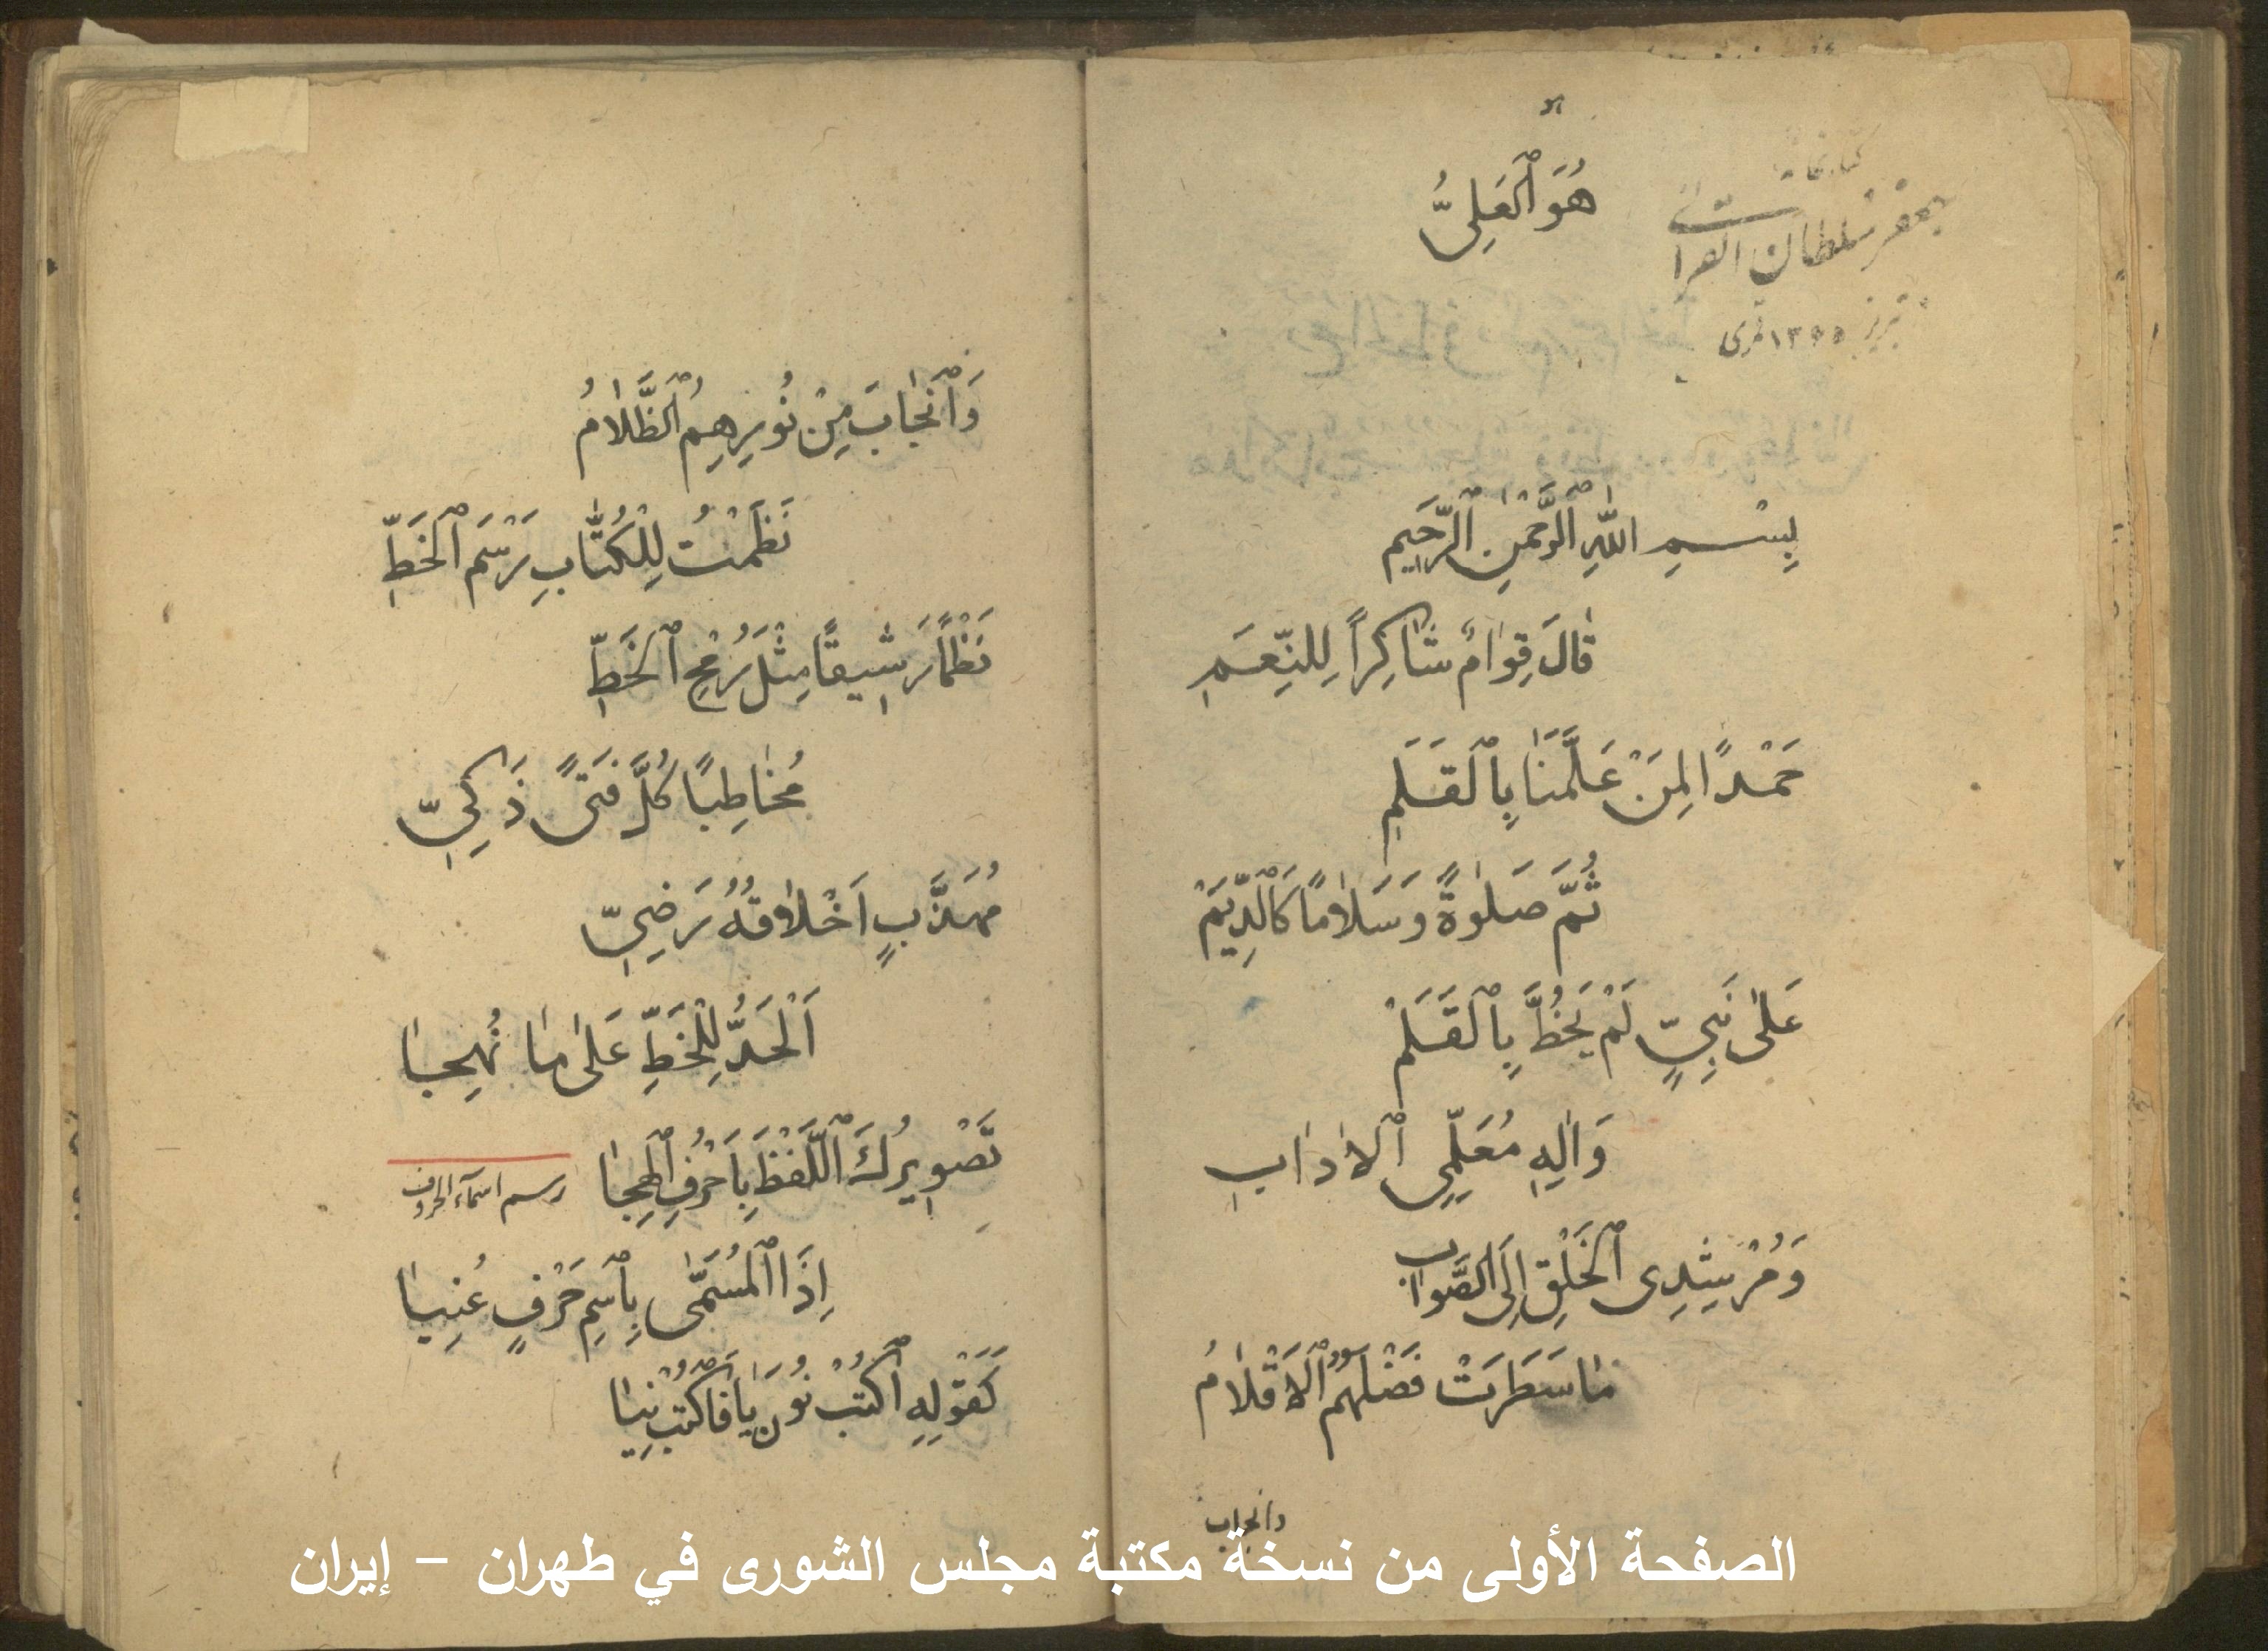 هُوَ ٱلْعَلِىُّ
كتابخانه
جعفر سلطان القرائى
تبریز ۱۳۵۵ قمرى
بِسْمِ اللّٰهِ ٱلرَّحْمٰنِ ٱلرَّحِيمِ
قٰالَ قِوٰامٌ شٰاكِراً لِلنِّعَمِ
حَمْدًا لِمَنْ عَلَّمَنٰا بِٱلْقَلَمِ
ثُمَّ صَلٰوةً وَ سَلٰامًا كَٱلدِّيَمْ
عَلىٰ نَبِىٍّ لَمْ يَخُطَّ بِٱلْقَلَمْ
وَاٰلِهِ مُعَلِّمِى ٱلْاٰدٰابِ
وَمُرْشِدِى ٱلْخَلْقِ اِلَى ٱلصَّوٰابِ
مٰا سَطَرَتْ فَضْلَهُمُ ٱلْاَقْلٰامُ
وانجاب
وَٱنْجٰابَ مِنْ نُورِهِمُ ٱلظَّلٰامُ
نَظَمْتُ لِلْكُتّٰابِ رَسْمَ ٱلْخَطِّ
نَظْمًا رَشِيقًا مِثْلَ رُمْحِ ٱلْخَطِّ
مُخٰاطِبًا كُلَّ فَتىً ذَكِىِّ
مُهَذَّبٍ اَخْلٰاقُهُ رَضِىِّ
اَلْحَدُّ لِلْخَطِّ عَلىٰ مٰا نُهِجٰا
تَصْوِيرُكَ ٱللَّفْظَ بِاَحْرُفِ ٱلْهِجٰا
رسم اسمآء الحروف
اِذَا ٱلْمُسَمّٰى بِٱسْمِ حَرْفٍ عُنِيٰا
كَقَوْلِهِ ٱكْتُبْ نُونَ يٰا فَٱكْتُبْ نِيٰا
الصفحة الأولى من نسخة مكتبة مجلس الشورى في طهران - إيران